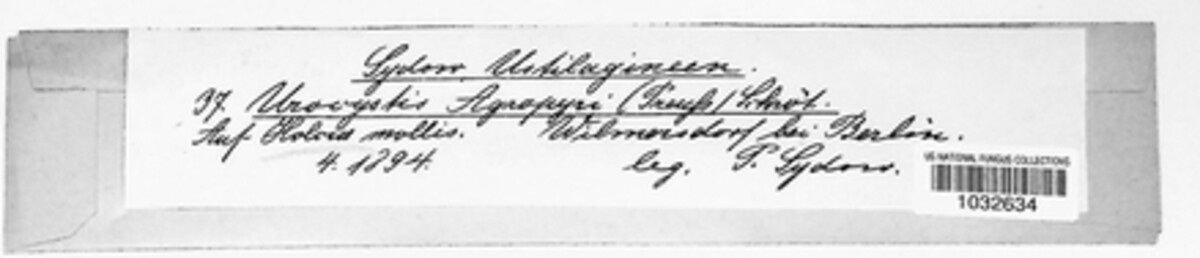 Sydow, Ustilagineen.
37. Urocystis Agropyri (Preuss) Schröt.
Auf Holcus mollis. Wilmersdorf bei Berlin.
4. 1894. leg. P. Sydow.
US NATIONAL FUNGUS COLLECTIONS
1032634